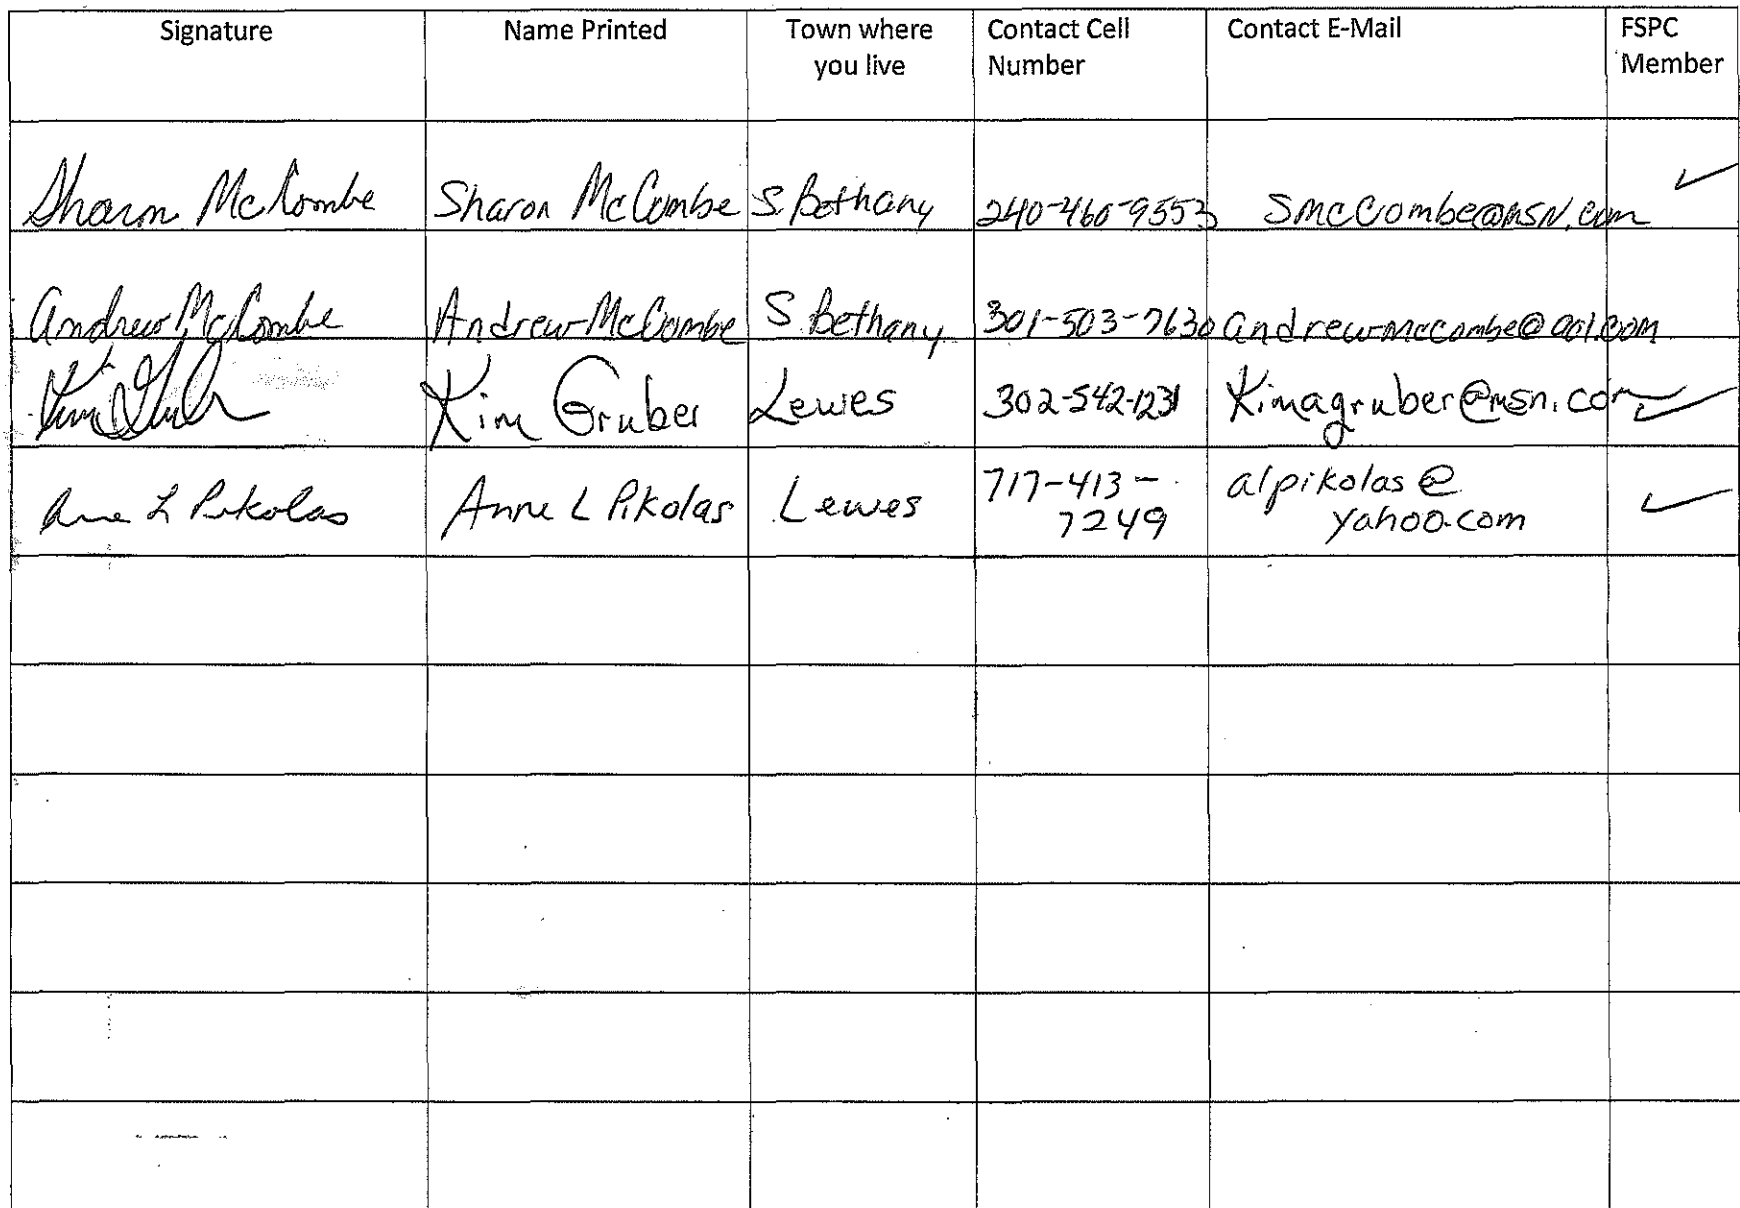 Signature Name Printed Town where you live Contact Cell Number Contact E-Mail FSPC Member
Sharon McCombe Sharon McCombe S. Bethany 240-460-9553 SmcCombe@msn.com ✓
Andrew McCombe Andrew McCombe S. Bethany 301-503-7630 andrewmccombe@aol.com
Kim Gruber Kim Gruber Lewes 302-542-1231 Kimagruber@msn.com ✓
Anne L Pikolas Anne L Pikolas Lewes 717-413-7249 alpikolas@yahoo.com ✓